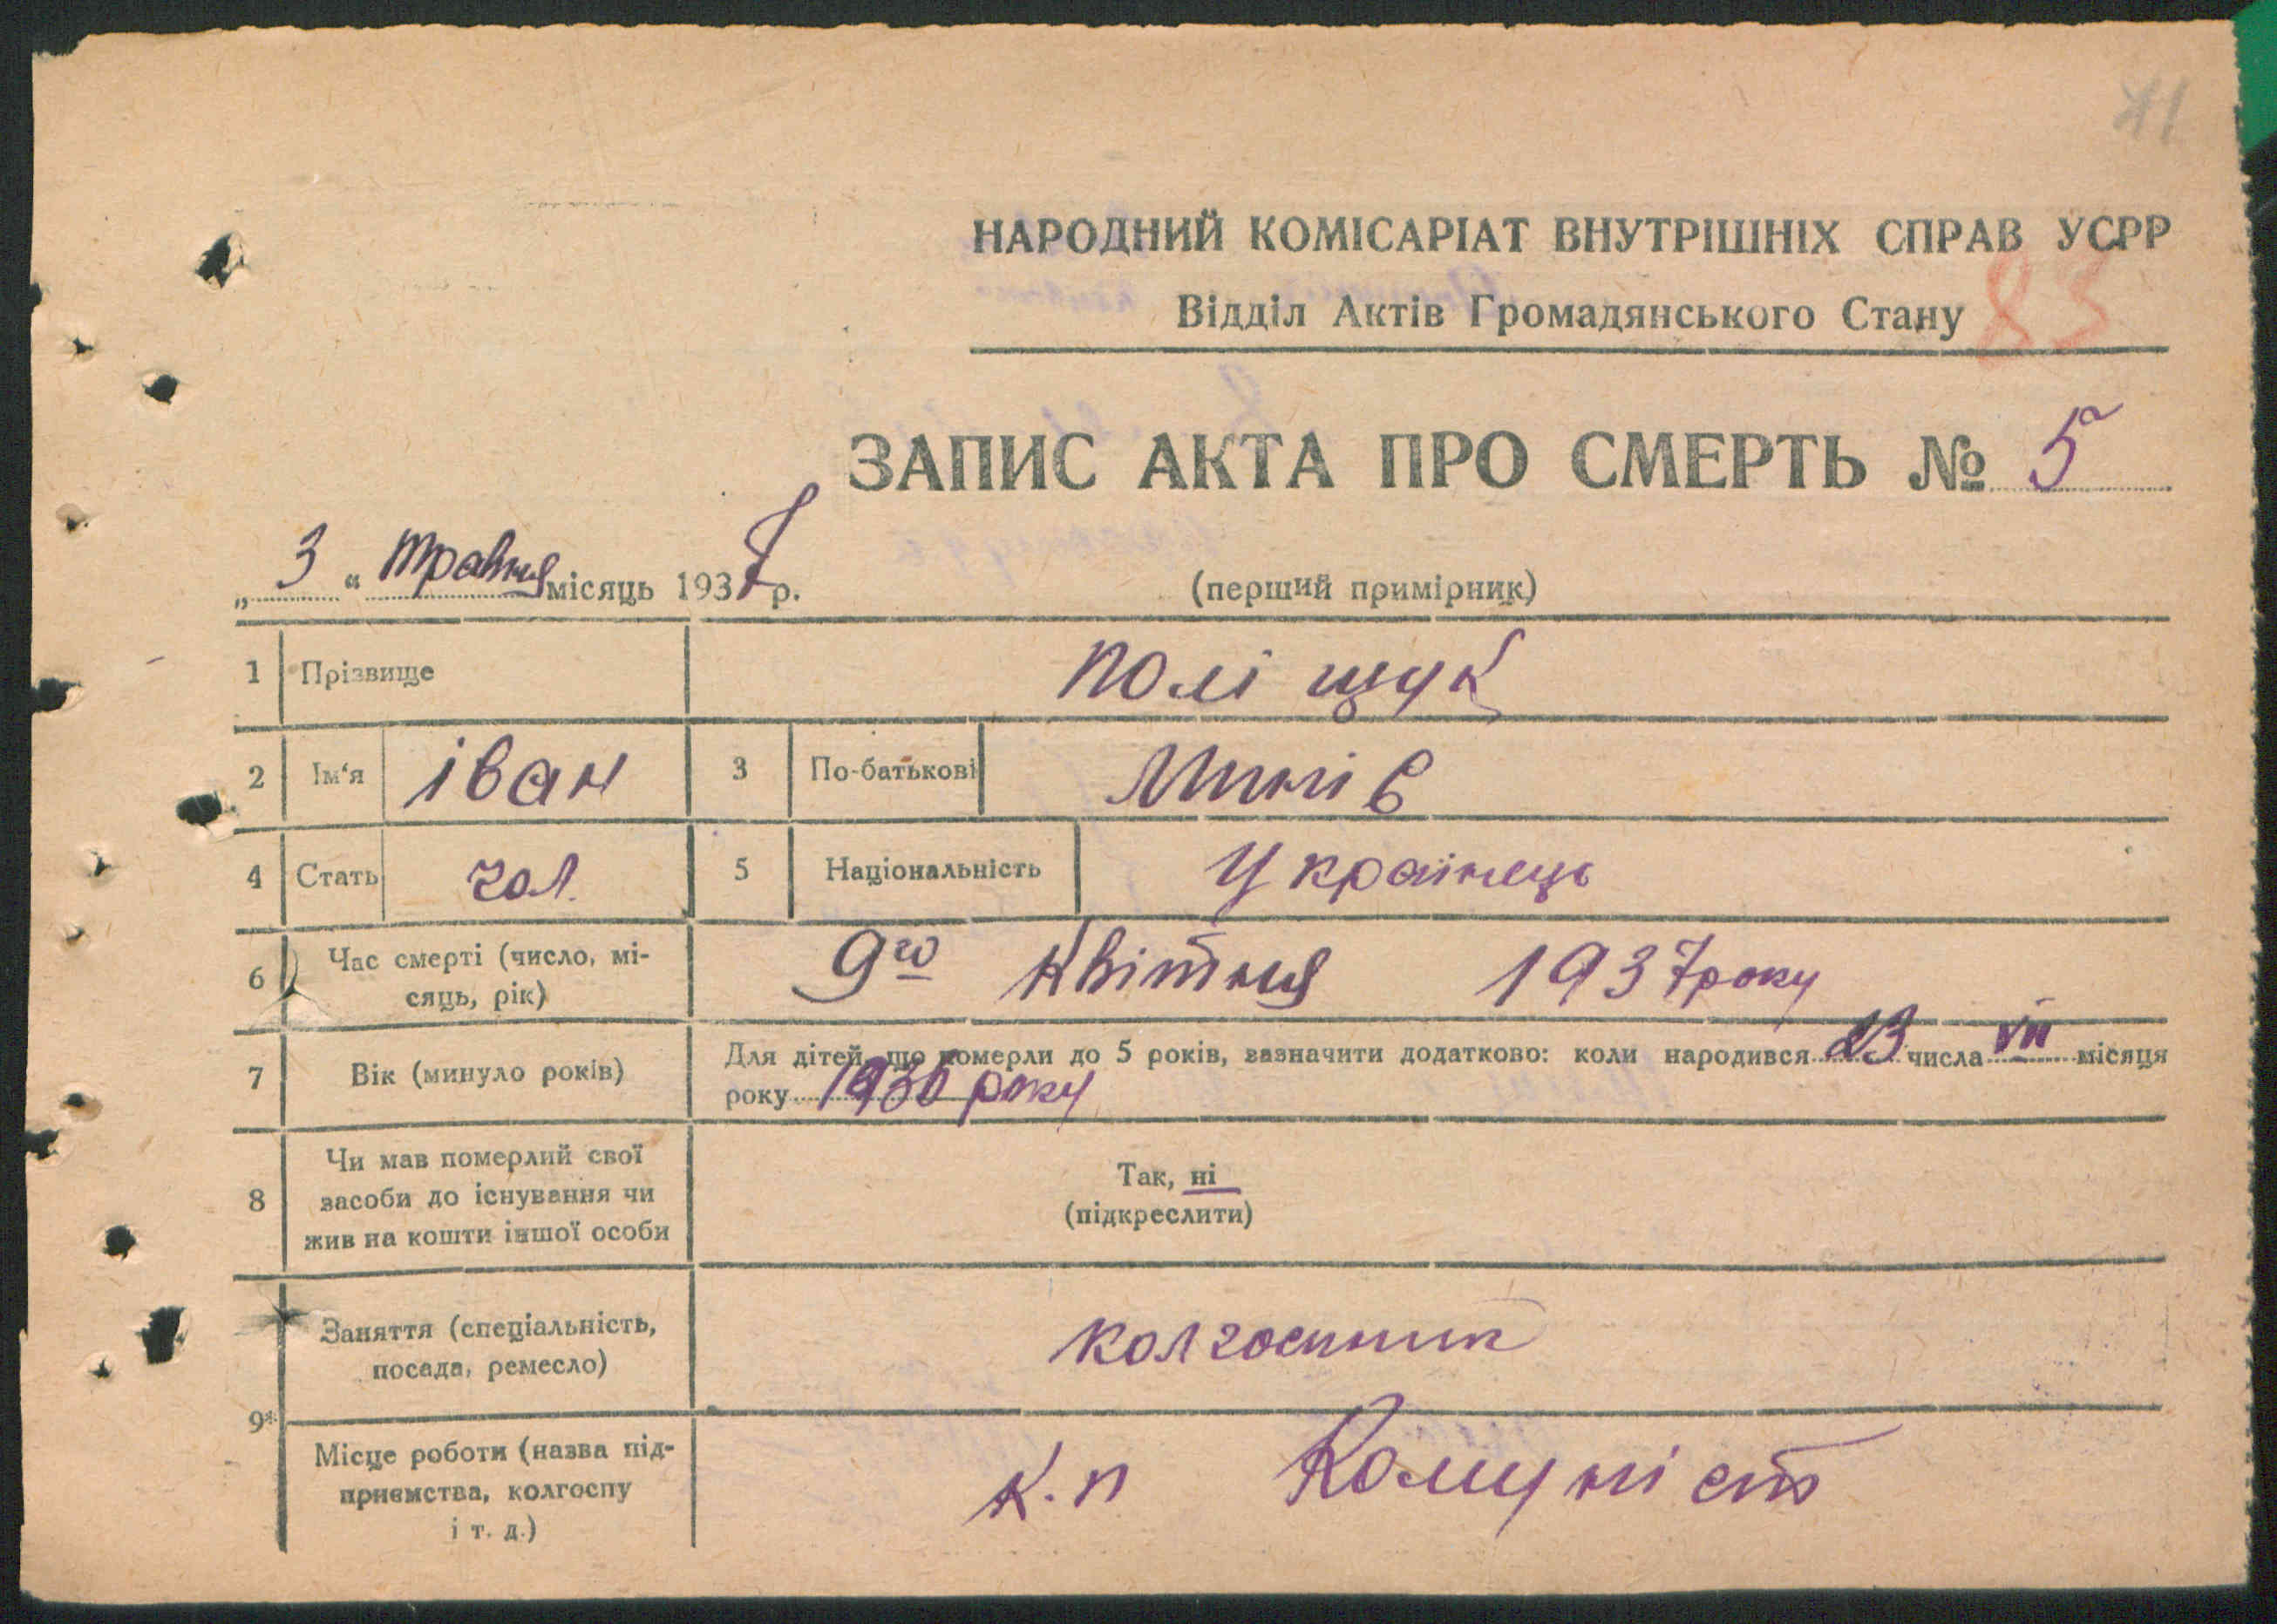 41
НАРОДНИЙ КОМІСАРІАТ ВНУТРІШНІХ СПРАВ УСРР
Відділ Актів Громадянського Стану 83
ЗАПИС АКТА ПРО СМЕРТЬ № 5
„ 3 “ травня місяць 1937 р. (перший примірник)
1 Прізвище Полі щук
2 Ім‘я іван 3 По-батькові
4 Стать чол. 5 Національність Українець
6 Час смерті (число, мі-
сяць, рік) 9го квітня 1937 року
7 Вік (минуло років) Для дітей, що померли до 5 років, зазначити додатково: коли народився 23 числа VII місяця
року 1936 року
8 Чи мав померлий свої
засоби до існування чи
жив на кошти іншої особи
Так, ні
(підкреслити)
9* Заняття (спеціальність,
посада, ремесло) колгоспник
Місце роботи (назва під-
приємства, колгоспу
і т. д.) К. п Комуніст